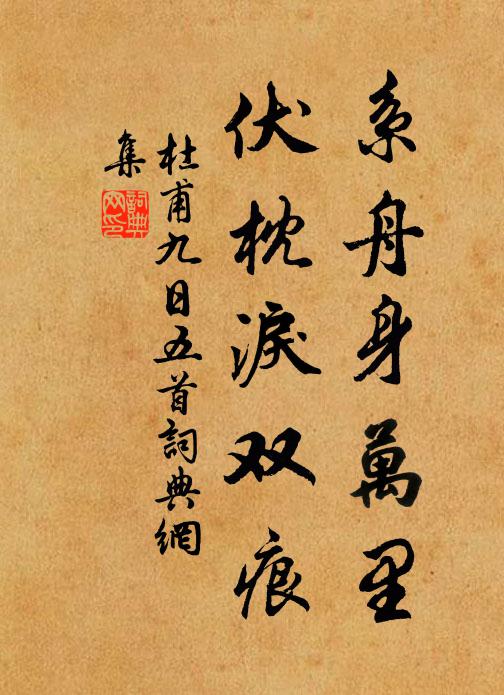 系舟身萬里
伏枕淚双痕
杜甫九日五首詞典網
集
詞典
网印